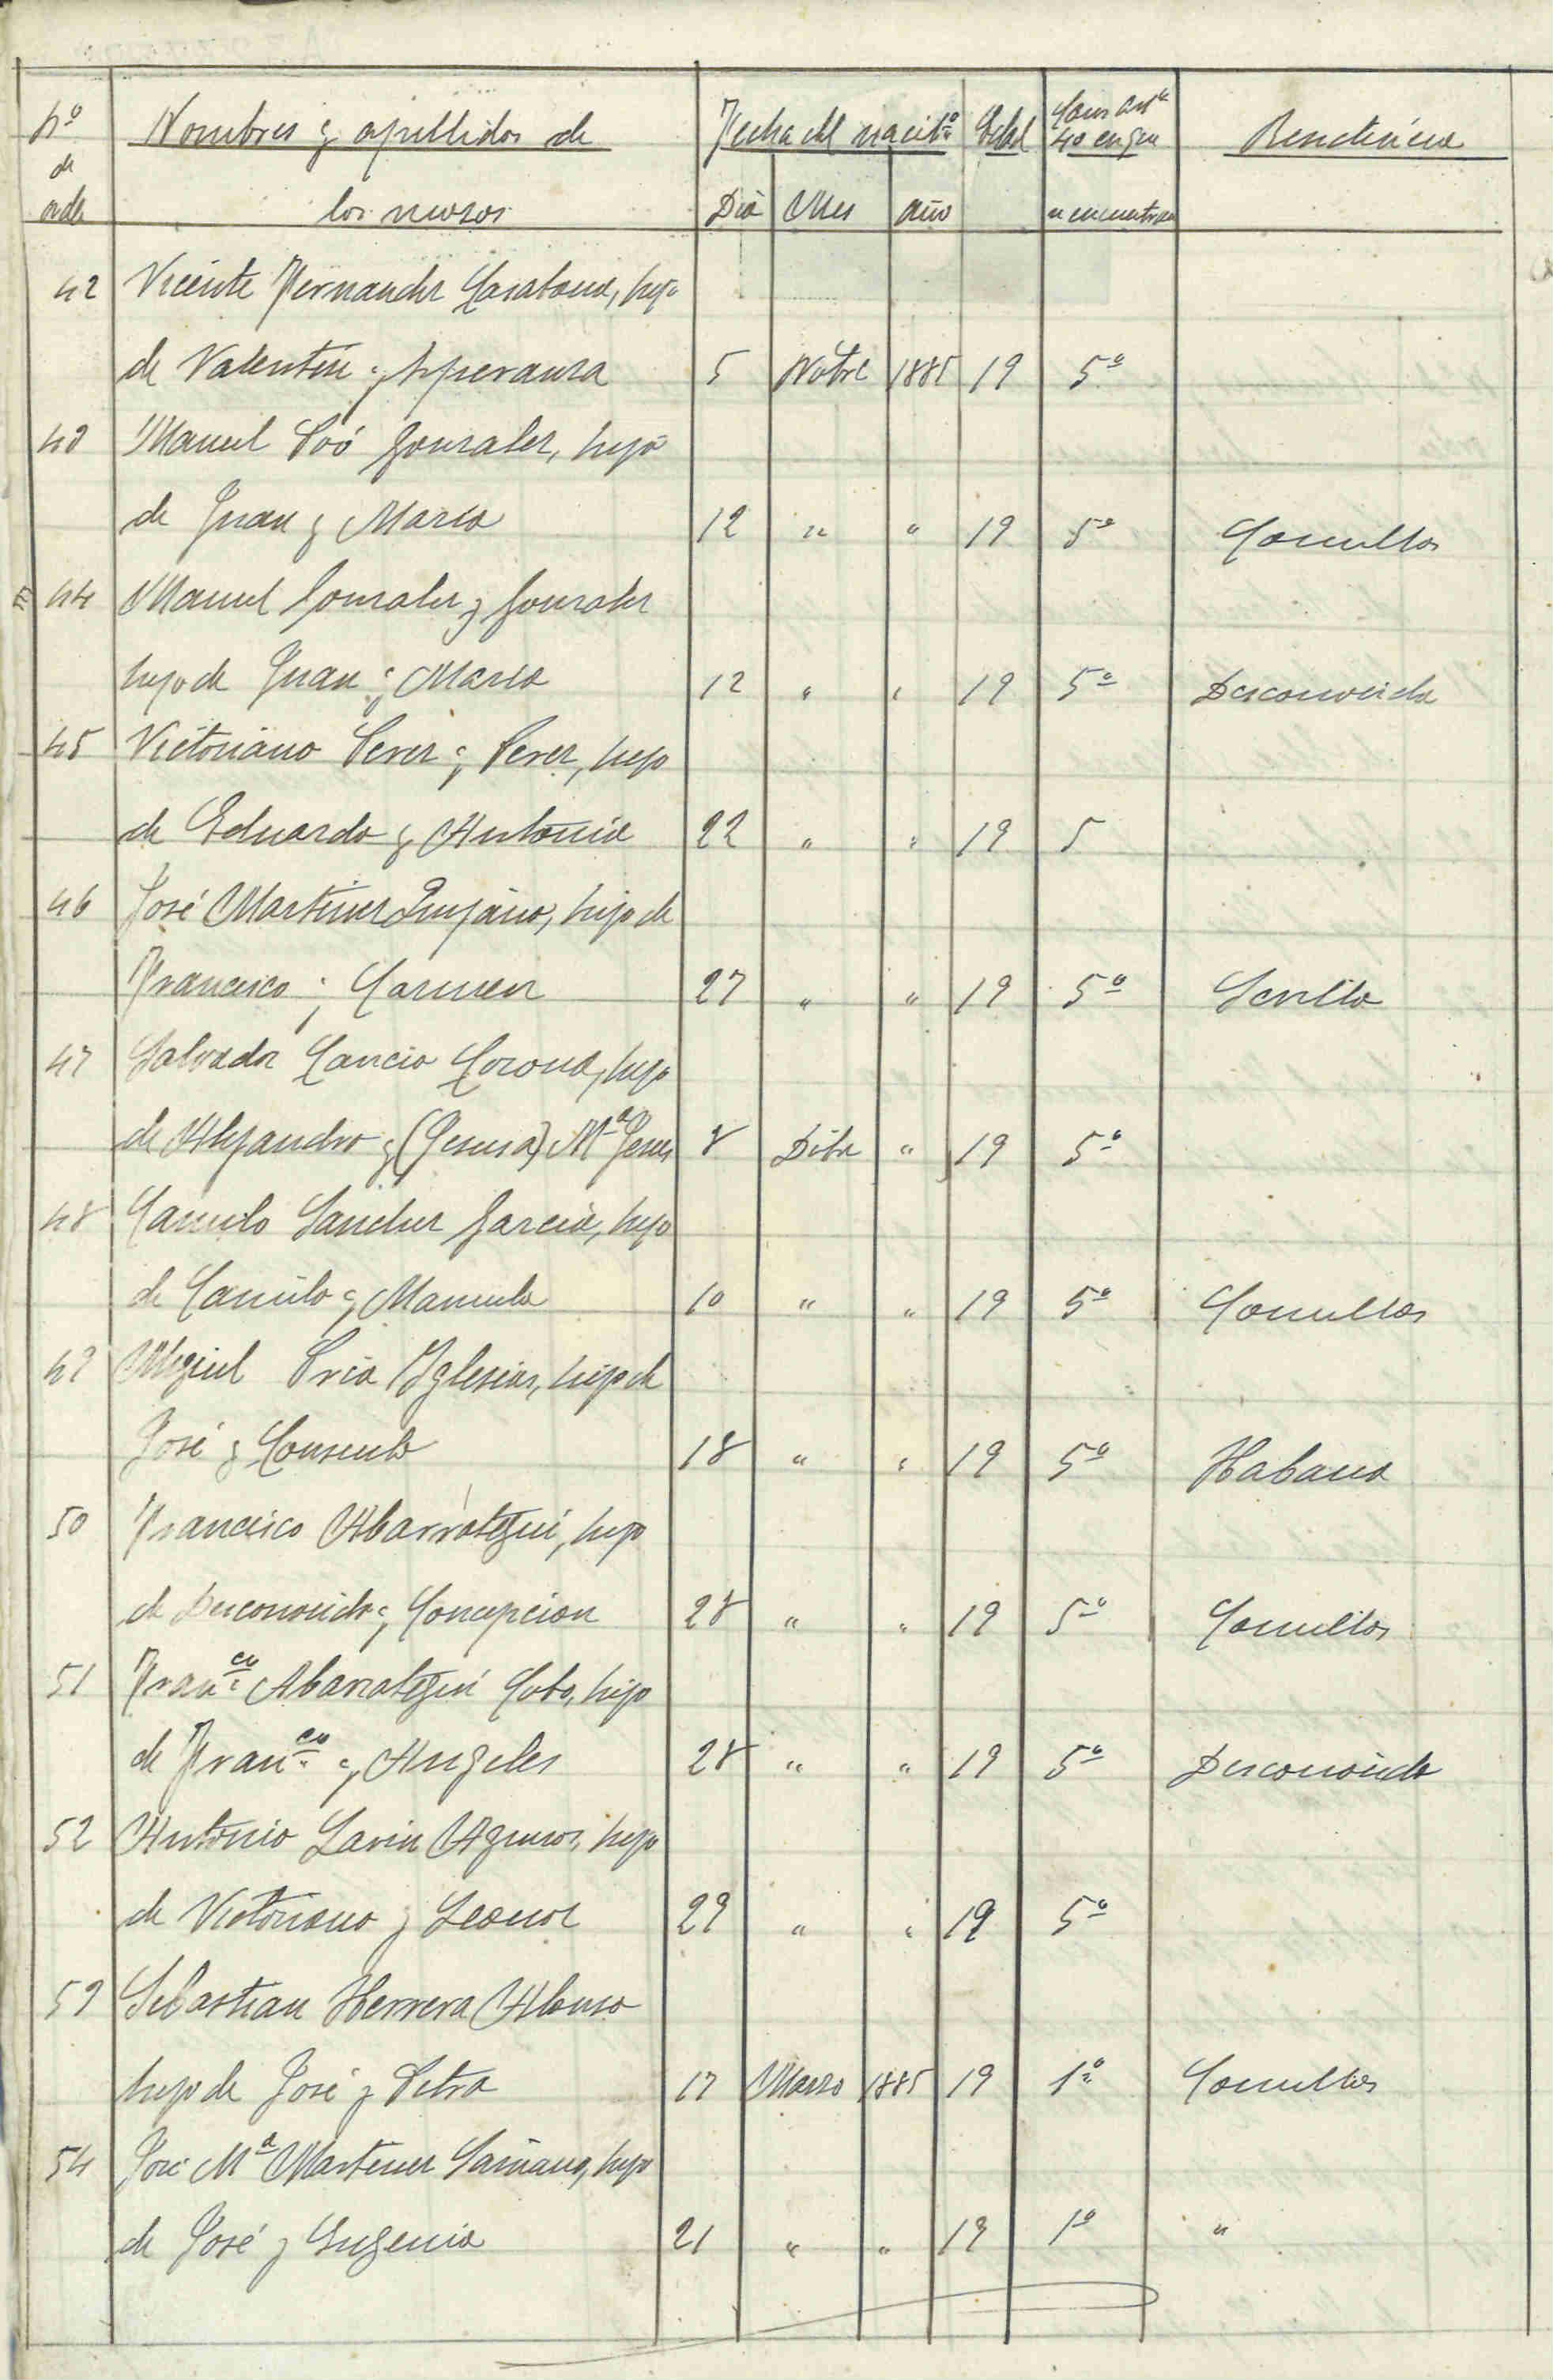 Nº Nombres y apellidos de Fecha del nacitº Edad Caso artº Residencia
de 40 en que
orde los mozos Dia Mes año se encuentran
42 Vicente Fernandez Casabona, hijo
de Valentin y Esperanza 5 Nobre 1885 19 5º
43 Manuel Póo Gonzalez, hijo
de Juan y Maria 12 " " 19 5º Comillas
44 Manuel Gonzalez y Gonzalez
hijo de Juan y Maria 12 " " 19 5º Desconocida
45 Victoriano Perez y Perez, hijo
de Eduardo y Antonia 22 " " 19 5
46 José Martinez Quijano, hijo de
Francisco y Carmen 27 " " 19 5º Sevilla
47 Salvador Cancio Corona, hijo
de Alejandro y (Jesusa) Mª Jesus 8 Dibre " 19 5º
48 Camilo Sanchez Garcia, hijo
de Camilo y Manuela 10 " " 19 5º Comillas
49 Miguel Pria Iglesias, hijo de
José y Consuelo 18 " " 19 5º Habana
50 Francisco Abarrategui, hijo
de Desconocido y Concepcion 28 " " 19 5º Comillas
51 Franco Abarrategui Coto, hijo
de Franco y Angeles 28 " " 19 5º Desconocida
52 Antonio Lavin Agueros, hijo
de Victoriano y Leonor 29 " " 19 5º
53 Sebastian Herrera Alonso
hijo de José y Petra 17 Marzo 1885 19 1º Comillas
54 José Mª Martinez Sainaus, hijo
de José y Eugenia 21 " " 19 1º "